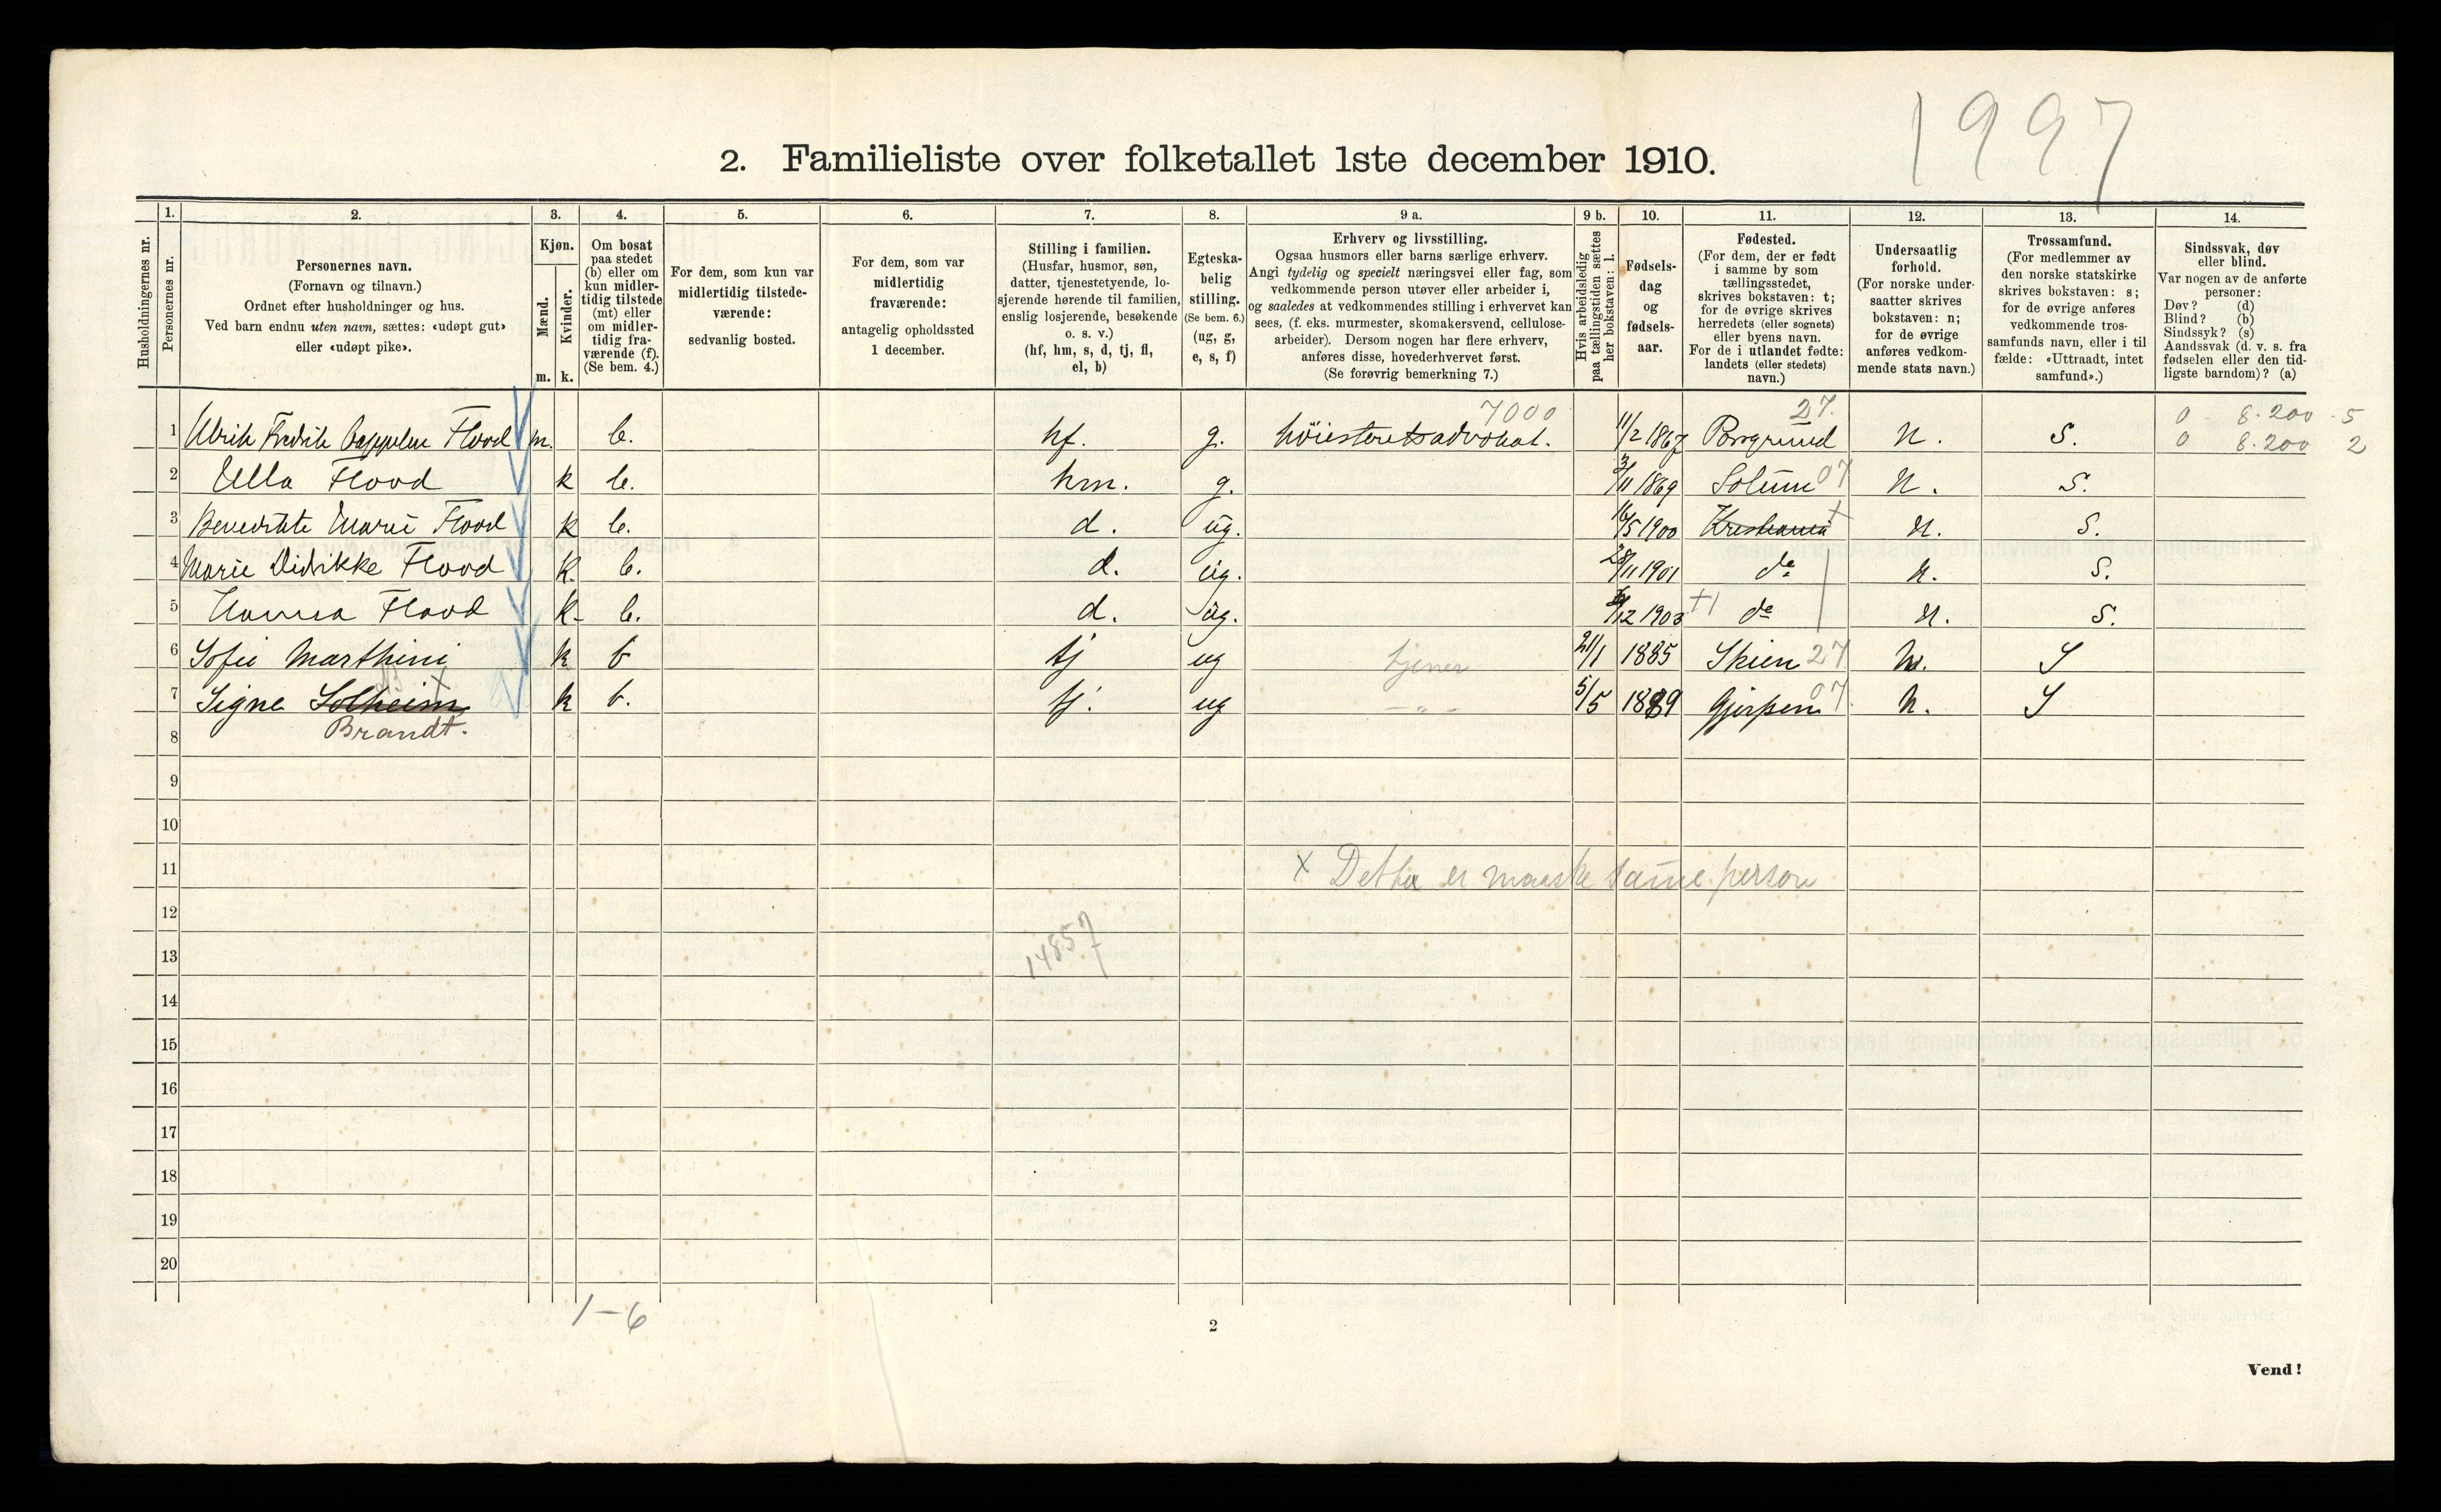 1997
2. Familieliste over folketallet 1ste december 1910.
Husholdningernes nr.
1.
Personernes nr.
2.
Personernes navn.
(Fornavn og tilnavn.)
Ordnet efter husholdninger og hus.
Ved barn endnu uten navn, sættes: «udøpt gut»
eller «udøpt pike».
3.
Kjøn.
Mænd.
Kvinder.
m. k.
4.
Om bosat
paa stedet
(b) eller om
kun midler-
tidig tilstede
(mt) eller
om midler-
tidig fra-
værende (f).
(Se bem. 4.)
5.
For dem, som kun var
midlertidig tilstede-
værende:
sedvanlig bosted.
6.
For dem, som var
midlertidig
fraværende:
antagelig opholdssted
1 december.
7.
Stilling i familien.
(Husfar, husmor, søn,
datter, tjenestetyende, lo-
sjerende hørende til familien,
enslig losjerende, besøkende
o. s. v.)
(hf, hm, s, d, tj, fl,
el, b)
8.
Egteska-
belig
stilling.
(Se bem. 6.)
(ug, g,
e, s, f)
9 a.
Erhverv og livsstilling.
Ogsaa husmors eller barns særlige erhverv.
Angi tydelig og specielt næringsvei eller fag, som
vedkommende person utøver eller arbeider i,
og saaledes at vedkommendes stilling i erhvervet kan
sees, (f. eks. murmester, skomakersvend, cellulose-
arbeider). Dersom nogen har flere erhverv,
anføres disse, hovederhvervet først.
(Se forøvrig bemerkning 7.)
9 b.
Hvis arbeidsledig
paa tællingstiden sættes
her bokstaven: l.
10.
Fødsels-
dag
og
fødsels-
aar.
11.
Fødested.
(For dem, der er født
i samme by som
tællingsstedet,
skrives bokstaven: t;
for de øvrige skrives
herredets (eller sognets)
eller byens navn.
For de i utlandet fødte:
landets (eller stedets)
navn.)
12.
Undersaatlig
forhold.
(For norske under-
saatter skrives
bokstaven: n;
for de øvrige
anføres vedkom-
mende stats navn.)
13.
Trossamfund.
(For medlemmer av
den norske statskirke
skrives bokstaven: s;
for de øvrige anføres
vedkommende tros-
samfunds navn, eller i til
fælde: «Uttraadt, intet
samfund».)
14.
Sindssvak, døv
eller blind.
Var nogen av de anførte
personer:
Døv? (d)
Blind? (b)
Sindssyk? (s)
Aandssvak (d. v. s. fra
fødselen eller den tid-
ligste barndom)? (a)
7000 27. 0 - 8.200 - 5
1 Ulrik Fredrik Cappelen Flood m. b. hf. g. høiesteretsadvokat. 11/2 1867 Porsgrund n. s. 0 8.200 2
2 Ulla Flood k b. hm. g. 3/11 1869 Solum 07 n. s.
3 Benedikte Marie Flood k b. d. ug. 16/5 1900 Kristiania + n. s.
4 Marie Didrikke Flood k. b. d. ug. 28/11 1901 do n. s.
5 Hanna Flood k. b. d. ug. /12 1903 +1 do n. s.
6 Sofie Marthini k b tj ug tjener 21/1 1885 Skien 27 n. S
7 Signe Solheim x k b. tj. ug —"— 5/5 1889 Gjerpen 07 n. S
Brandt.
8
9
10
11 x Dette er maaske samme person
12
13 14857
14
15
16
17
18
19
20
1-6
2
Vend!